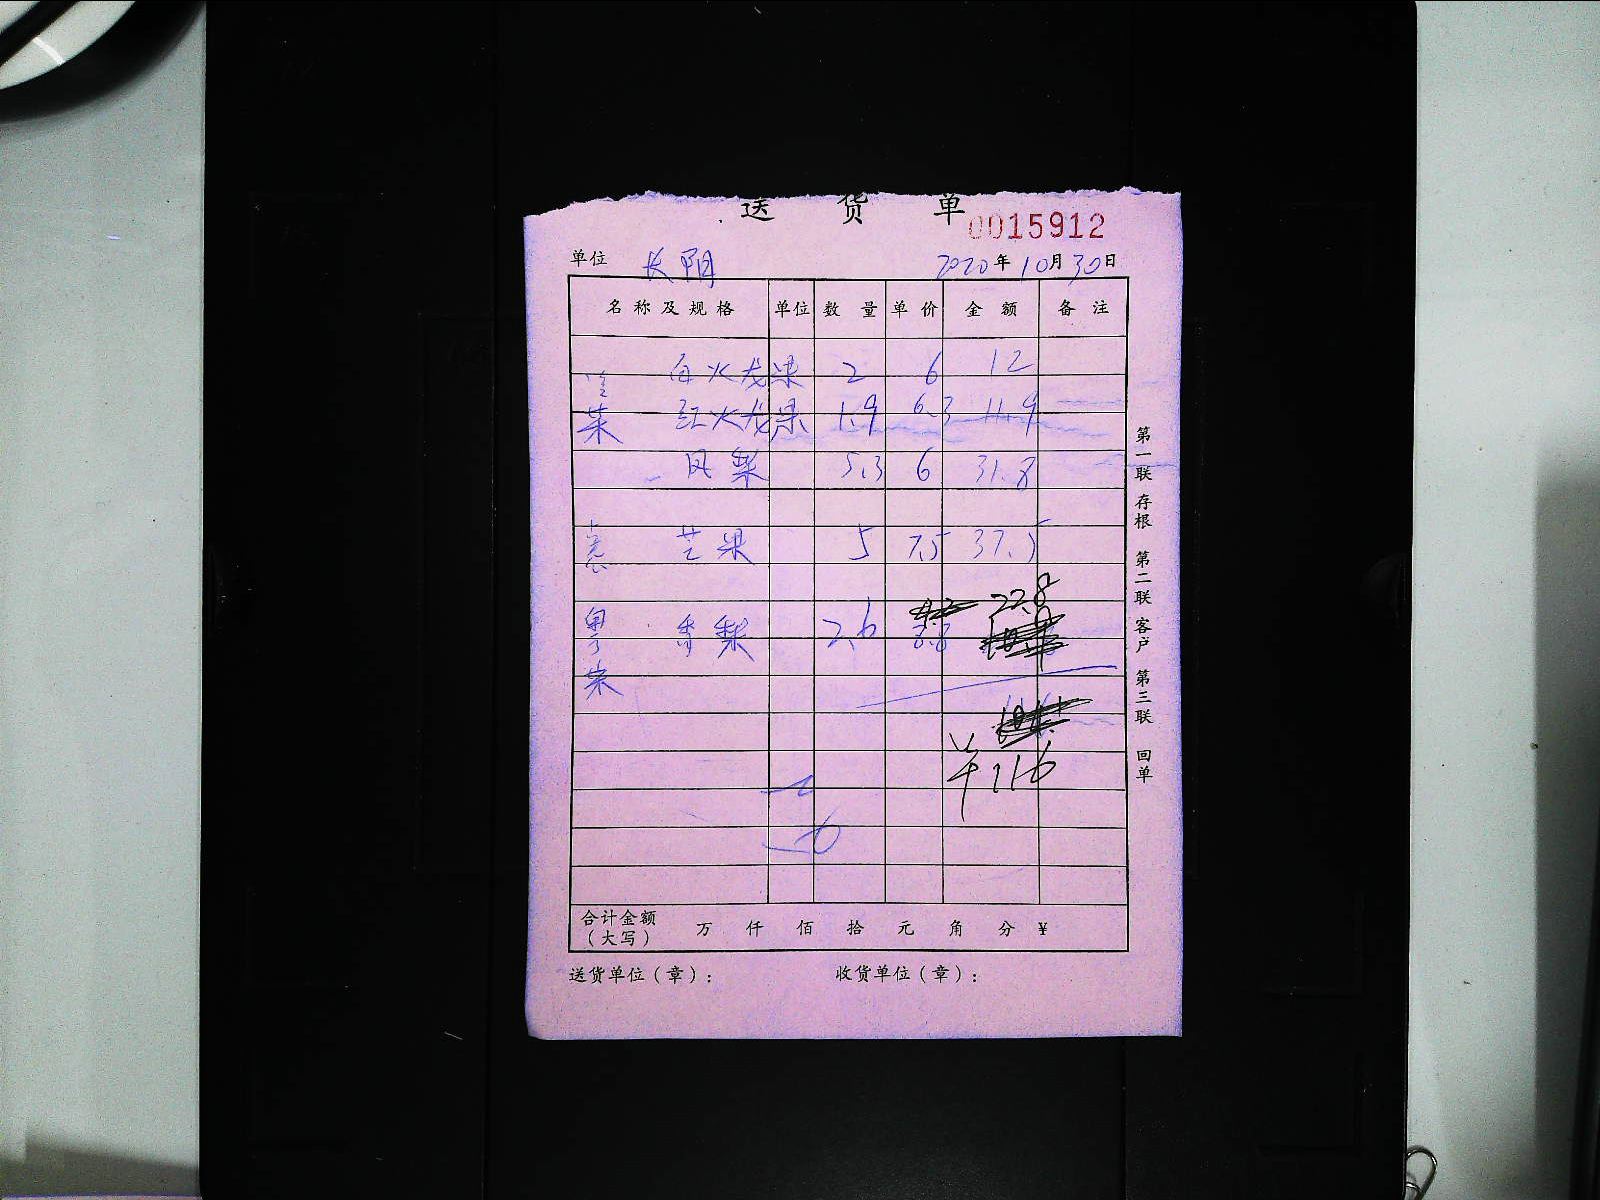 送 货 单
0015912
单位 长阳 2020年10月30日
名称及规格 单位 数量 单价 金额 备注
白火龙果 2 6 12
红火龙果 1.9 6.3 11.9
凤梨 5.3 6 31.8
芒果 5 7.5 37.5
香梨 2.6 8.8 22.8
¥116
合计金额（大写） 万 仟 佰 拾 元 角 分 ¥
送货单位（章）： 收货单位（章）：
第一联 存根 第二联 客户 第三联 回单